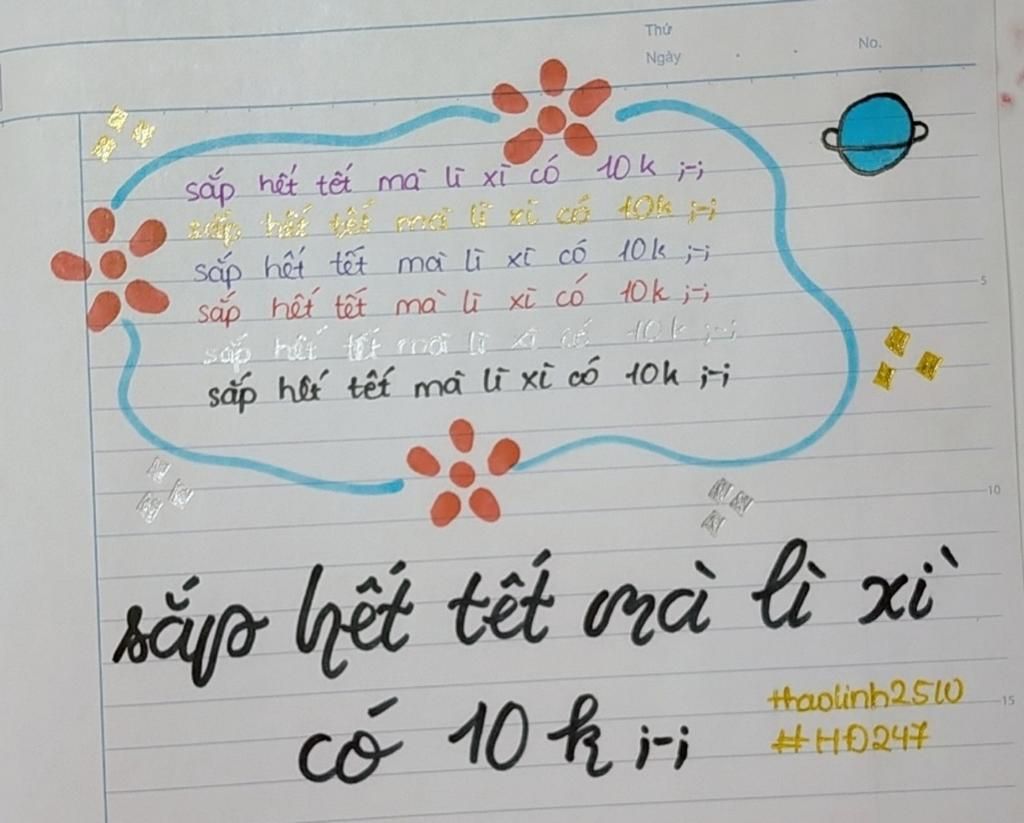 Thứ
Ngày
No.
sắp hết tết mà lì xì có 10k ;-;
sắp hết tết mà lì xì có 10k ;-;
sắp hết tết mà lì xì có 10k ;-;
sắp hết tết mà lì xì có 10k ;-;
sắp hết tết mà lì xì có 10k ;-;
sắp hết tết mà lì xì có 10k ;-;
5
10
sắp hết tết mà lì xì
có 10k ;-;
thaolinh2510
#HĐ247
15